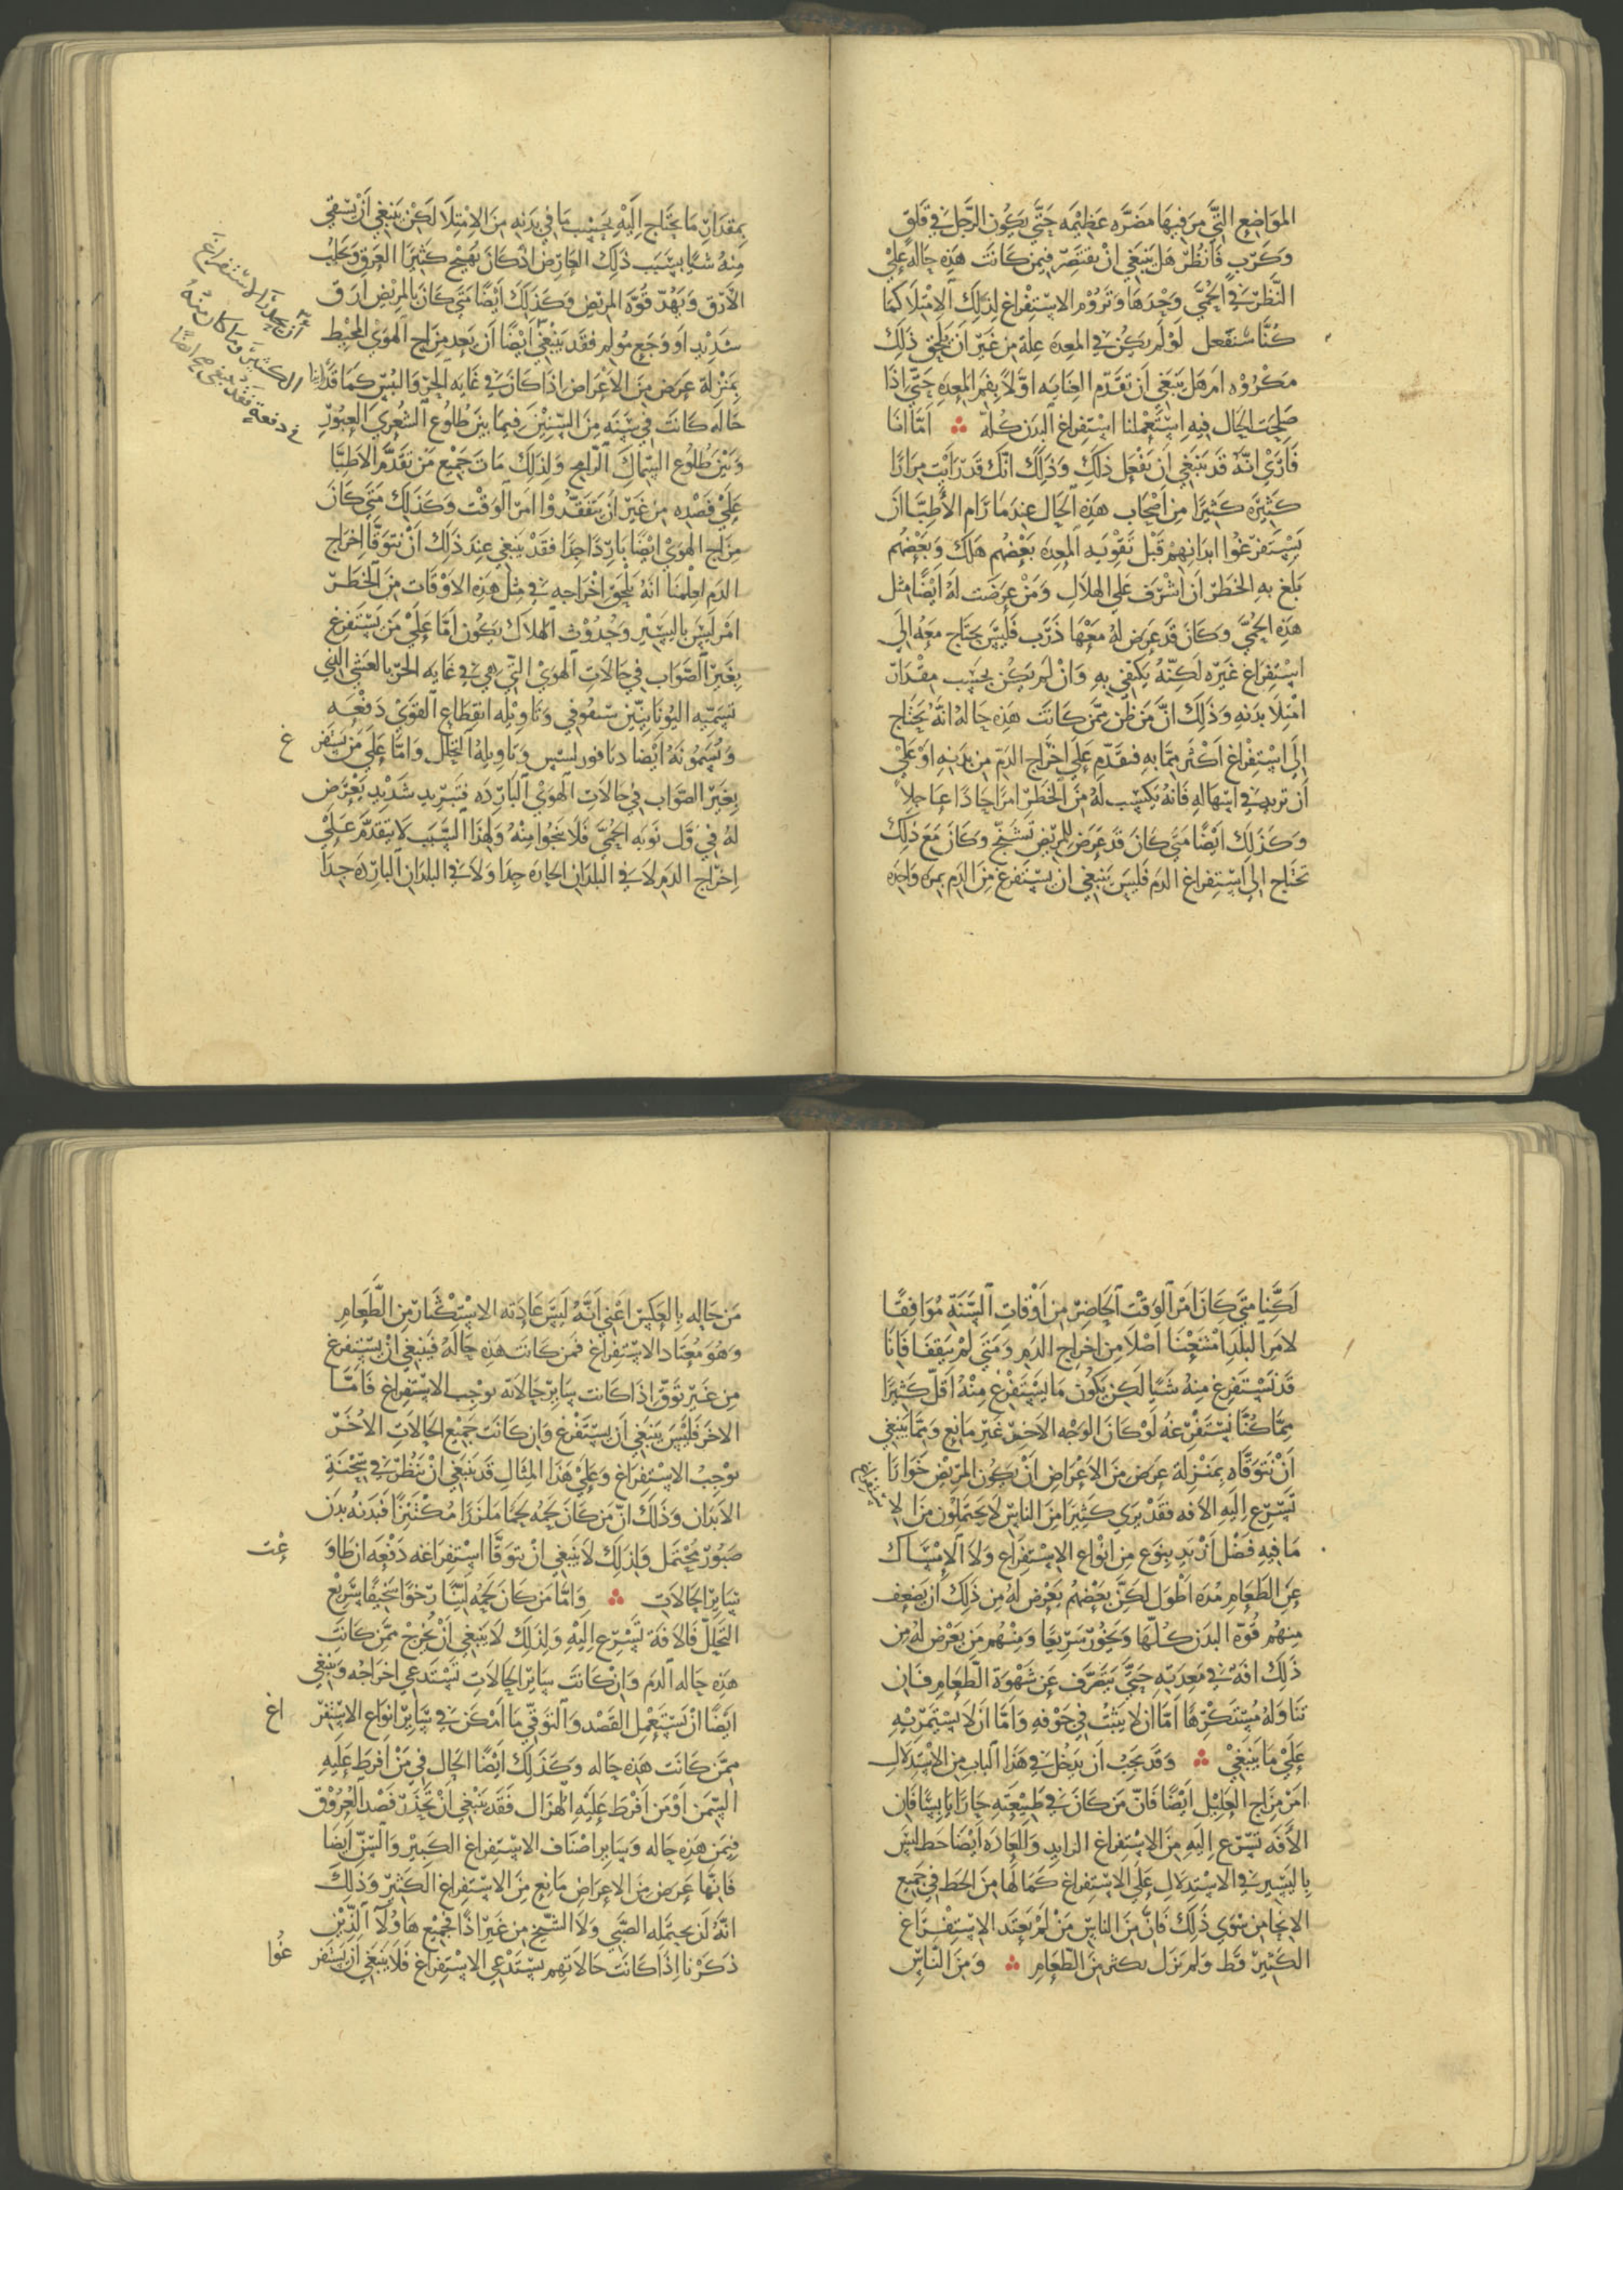 المواضع التي من فيها مضره عظيمه حتي يكون الرجل في قلق
وكرب فانظر هل ينبغي ان يقتصر فيمن كانت هذه حاله علي
النظر في الحمي وحدها وتروم الاستفراغ لذلك الامتلا كما
كنا سنفعل لو لم يكن في المعده علة من غير ان يلحق ذلك
مكروه ام هل ينبغي ان تقدم العنايه اولا بفم المعده حتي اذا
صلحت الحال فيه استعملنا استفراغ البدن كله اما انا
فاري انه قد ينبغي ان يفعل ذلك وذلك انك قد رايت مرارا
كثيره كثيرا من اصحاب هذه الحال عند ما رام الأطبا ان
يستفرغوا ابدانهم قبل تقويه المعده بعضهم هلك وبعضهم
بلغ به الخطر ان اشرف علي الهلاك ومن عرضت له ايضا مثل
هذه الحمي وكان قد عرض له معها ذرب فليس يحتاج معه الي
استفراغ غيره لكنه يكتفي به وان لم يكن بحسب مقدار
امتلا بدنه وذلك ان من ظن بمن كانت هذه حاله انه يحتاج
الي استفراغ اكثر مما به فتقدم علي اخراج الدم من بدنه او علي
ان تريد في اسهاله فانه يكسب له من الخطر امرا حادا عاجلا
وكذلك ايضا متي كان قد عرض للمريض تشنج وكان مع ذلك
تحتاج الي استفراغ الدم فليس ينبغي ان يستفرغ من الدم بمره واحده
بمقدار ما يحتاج اليه بحسب ما في بدنه من الامتلا لكن ينبغي ان يبقي
منه شيا بسبب ذلك العارض اذ كان يهيج كثيرا العرق ويجلب
الارق ويهد قوه المريض وكذلك ايضا متي كان بالمريض ارق
شديد او وجع مولم فقد ينبغي ايضا ان
ان يحذر الاستفراغ
الكثير وما كان منه
في دفعة فقد ينبغي ايضا
يعد مزاج الهوي المحيط
بمنزلة عرض من الاعراض اذا كان في غايه الحر واليبس كما قد راينا
حاله كانت في سنه من السنين فيما بين طلوع الشعري العبور
وبين طلوع السماك الرامح ولذلك مات جميع من تقدم الاطبا
علي فصده من غير ان يتفقدوا امر الوقت وكذلك متي كان
مزاج الهوي ايضا باردا جدا فقد ينبغي عند ذلك ان نتوقا اخراج
الدم لعلمنا انه يلحق اخراجه في مثل هذه الاوقات من الخطر
امر ليس باليسير وحدوث الهلاك يكون اما علي من يستفرغ
بغير الصواب في حالات الهوي التي هي في غايه الحر بالغشي الذي
تسميه اليونانيين سنقوفي وتاويله انقطاع القوي دفعه
ويسمونه ايضا وتاويله التحلل واما علي من يستفرغ
بغير الصواب في حالات الهوي البارده فتبريد شديد يعرض
له في اول نوبه الحمي فلا ينجوا منه ولهذا السبب لا يتقدم علي
اخراج الدم لا في البلدان الحاره جدا ولا في البلدان البارده جدا
لكنا متي كان امر الوقت الحاضر من اوقات السنة موافقا
لامر البلد امتنعنا اصلا من اخراج الدم ومتي لم يتفقا فانا
قد نستفرغ منه شيا لكن يكون ما يستفرغ منه اقل كثيرا
مما كنا نستفرغه لو كان الوجه الاخر غير مانع ومما ينبغي
ان نتوقاه بمنزلة عرض من الاعراض ان يكون المريض خوارا
تسرع اليه الافه فقد يري كثيرا من الناس لا يحتملون من لا
ما فيه فضل ان يد بنوع من انواع الاستفراغ ولا الامساك
عن الطعام مده اطول لكن بعضهم يعرض له من ذلك ان يضعف
منهم قوة البدن كلها ويخور سريعا ومنهم من يعرض له من
ذلك افه في معدته حتي ينصرف عن شهوة الطعام فان
تناوله مستكرها اما ان لا يثبت في جوفه واما ان لا يستمريه
علي ما ينبغي وقد يجب ان يدخل في هذا الباب من الاستدلال
امر مزاج العليل ايضا فان من كان في طبيعته حارا يابسا فان
الافه تسرع اليه من الاستفراغ الزايد والعاده ايضا حط ليس
باليسير في الاستدلال علي الاستفراغ كما لها من الحط في جميع
الانحا من سوي ذلك فان من الناس من لم يعتد الاستفراغ
الكثير قط ولم يزل يكثر من الطعام ومن الناس
من حاله بالعكس اعني انه ليس عادته الاستكثار من الطعام
وهو معتاد الاستفراغ فمن كانت هذه حاله فينبغي ان يستفرغ
من غير توق اذا كانت ساير حالاته توجب الاستفراغ فاما
الاخر فليس ينبغي ان يستفرغ وان كانت جميع الحالات الاخر
توجب الاستفراغ وعلي هذا المثال قد ينبغي ان ينظر في سحنة
الابدان وذلك ان من كان لحمه لحما ملززا مكتنزا فبدنه بدن
صبور محتمل ولذلك لا ينبغي ان نتوقا استفراغه دفعه ان طاوعت
ساير الحالات واما من كان لحمه لينا رخوا سخيفا سريع
التحلل فالافة تسرع اليه ولذلك لا ينبغي ان يخرج ممن كانت
هذه حاله الدم وان كانت ساير الحالات تستدعي اخراجه وينبغي
ايضا ان يستعمل القصد والتوقي ما امكن في ساير انواع الاستفراغ
ممن كانت هذه حاله وكذلك ايضا الحال في من افرط عليه
السمن او من افرط عليه الهزال فقد ينبغي ان تحذر فصد العروق
فيمن هذه حاله وساير اصناف الاستفراغ الكبير والسن ايضا
فانها عرض من الاعراض مانع من الاستفراغ الكثير وذلك
انه لن يحتمله الصبي ولا الشيخ من غير اذا فجميع هاولا الذين
ذكرنا اذا كانت حالاتهم تستدعي الاستفراغ فلا ينبغي ان يستفرغوا